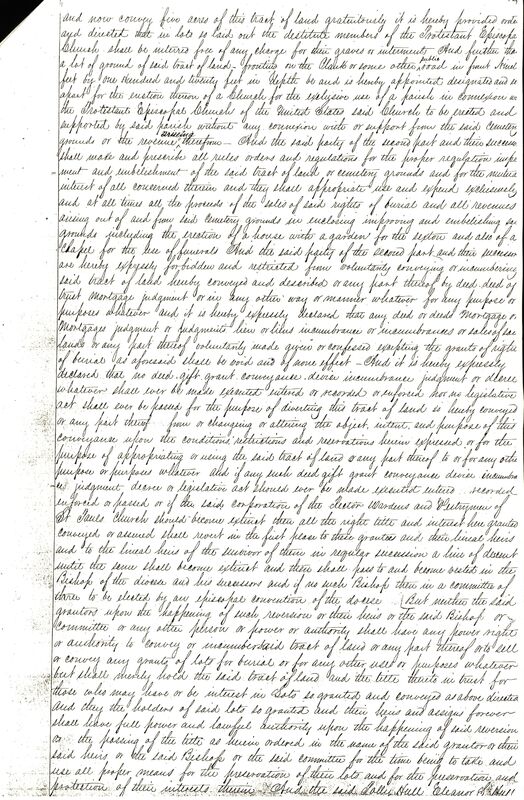 and now convey five acres of this tract of land gratuitously it is hereby provided orde
and directed that in lots so laid out the destitute members of the Protestant Episcopa
Church shall be interred free of any charge for their graves or interments And further tha
a lot of ground of said tract of land fronting on the or some other public road in front
feet by one hundred and twenty feet in depth be and is hereby appointed designated and se
apart for the erection thereon of a Church for the exclusive use of a parish in connexion
the Protestant Episcopal Church of the United States said Church to be erected and
supported by said parish without any connexion with or support from the said Cemetery
grounds or the revenue arising therefrom – And the said party of the second part and their successors
shall make and prescribe all rules orders and regulations for the proper regulation improve
ment and embelishment of the said tract of land or cemetery grounds and for the mutual
interest of all concerned therein and they shall appropriate use and expend exclusively
and at all times all the proceeds of the sales of said rights of burial and all revenues
arising out of and from said Cemetery grounds in enclosing improving and embelishing sa
grounds including the erection of a house with a garden for the sexton and also of a
Chapel for the use of funerals And the said party of the second part and their successors
are hereby expressly forbidden and restricted from voluntarily conveying or incumbering
said tract of land hereby conveyed and described or any part thereof by deed deed of
trust mortgage judgment or in any other way or manner whatever for any purpose or
purposes whatever and it is hereby expressly declared that any deed or deeds Mortgage or
Mortgages judgment or judgments lien or liens incumbrance or incumbrances or sales of sa
lands or any part thereof voluntarily made given or confessed excepting the grants of right
of burial as aforesaid shall be void and of none effect – And it is hereby expressly
declared that no deed gift grant conveyance devise incumbrance judgment or decree
whatever shall ever be made executed entered or recorded or enforced nor no legislative
act shall ever be passed for the purpose of diverting this tract of land is hereby conveyed
or any part thereof from or changing or altering the object intent and purpose of this
conveyance upon the conditions restrictions and reservations herein expressed or for the
purpose of appropriating or using the said tract of land or any part thereof to or for any other
purpose or purposes whatever and if any such deed gift grant conveyance devise incumbran
ce judgment decree or legislative act should ever be made executed entered recorded
enforced or passed or if the said corporation of the Rector Wardens and Vestrymen of
St Pauls Church should become extinct then all the right title and interest here granted
conveyed or assured shall revert in the first place to these grantors and their lineal heirs
and to the lineal heirs of the survivor of them in regular succession a line of decent
until the same shall become extinct and then shall pass to and become vested in the
Bishop of the diocese and his successors and if no such Bishop then in a committee of
three to be elected by an episcopal convention of the diocese But neither the said
grantors upon the happening of such reversion or their heirs or the said Bishop or
Committee or any other person or power or authority shall have any power right
or authority to convey or incumber said tract of land or any part thereof or to sell
or convey any grants of lots for burial or for any other uses or purposes whatever
but shall merely hold the said tract of land and the title thereto in trust for
those who may have or be interest in Lots so granted and conveyed as above directed
and they the holders of said lots so granted and their heirs and assigns forever
shall have full power and lawful authority upon the happening of said reversion
or the passing of the title as herein ordered in the name of the said grantor or their
said heirs or the said Bishop or the said committee for the time being to take and
use all proper means for the preservation of their lots and for the preservation and
protection of their interests therein And the said Hull Eleanor